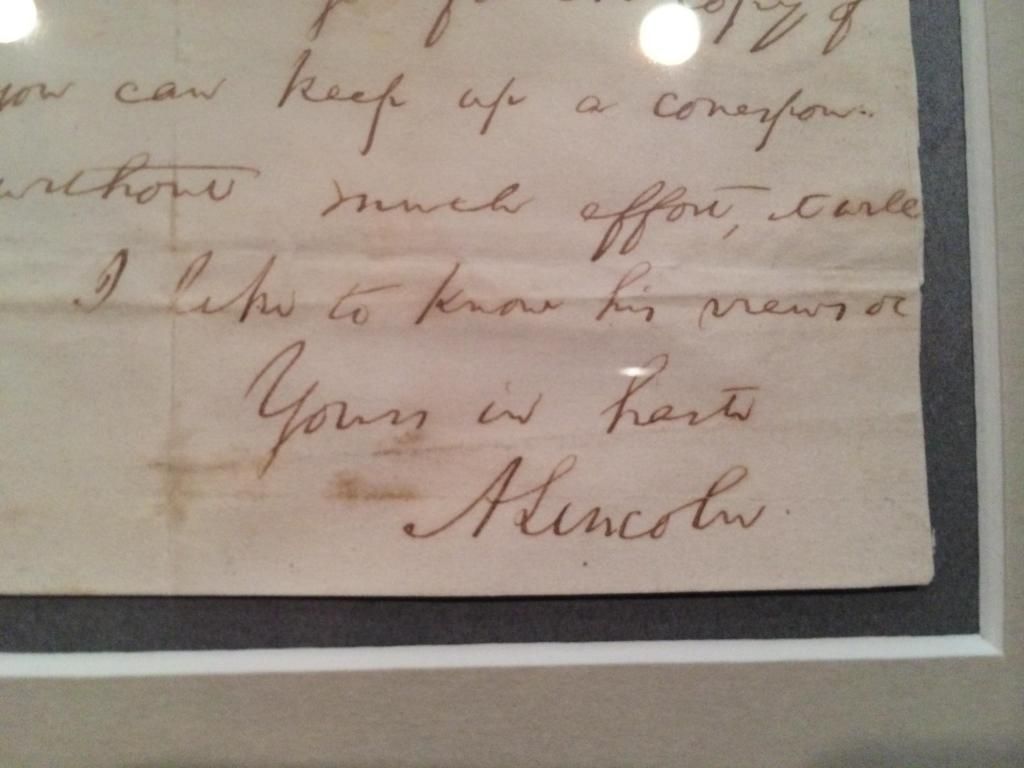 copy of
you can keep up a correspon-
without much effort, it will
I like to know his views oc
Yours in haste
A Lincoln